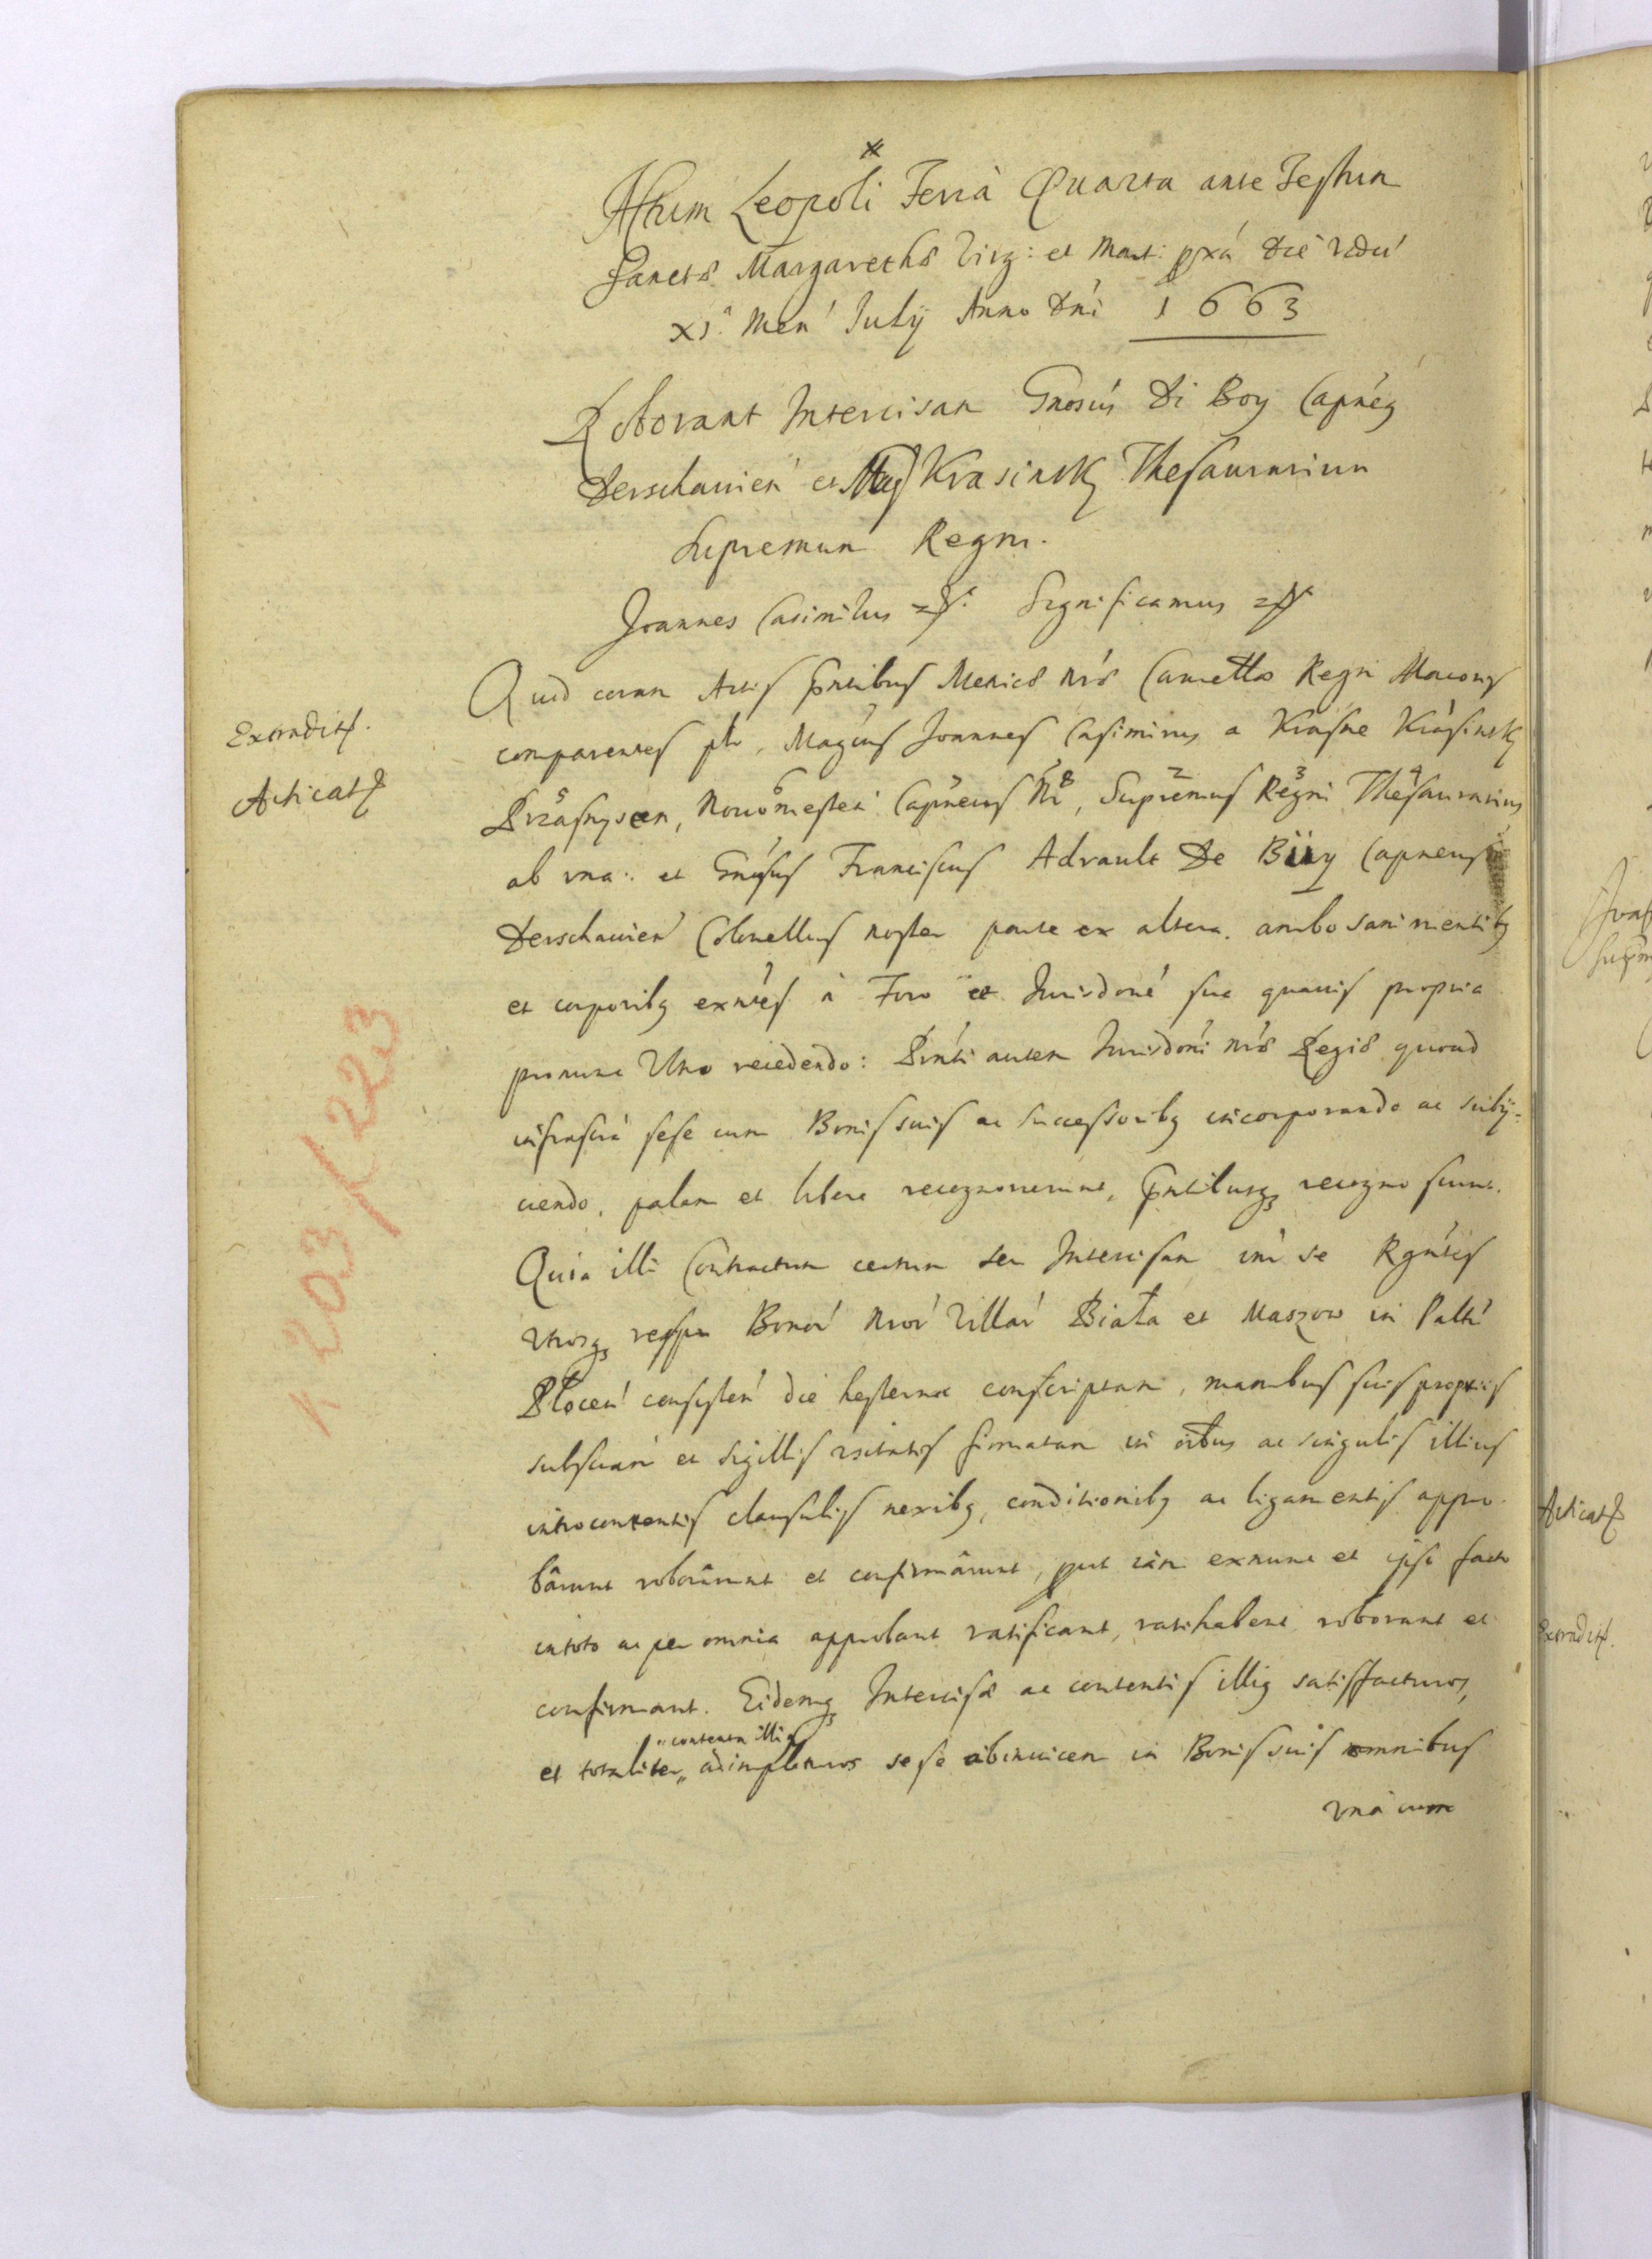 Actum Leopoli Feria Quarta ante Festum
Sanctæ Margarethæ Virg: et Mart: pxã die Vdú
XIª Men' July Anno Dni 1663
Roborant Intercisam Gnosús Di Boy Capneg
Derschauien' et Mag Krasinsky Thesaurarium
Supremum Regni.
Joannes Casimirus Significamus
Quia coram Actis pntibus Metrices nræ Cancellæ Regni
Extradit.
comparentes Magcus Joannes Casimirus a Krasne Krasinsky
Acticat
Przasnyscen, Nouomiesten Capneus Nr, Supremus Regni Thesaurarius
5 6 7 8 2 3 4
ab vna: et Gnosus Franciscus Adrault De Buy Capneus
Derschauien' Colonellus noster parte ex altera. ambo sani mentibq
et corporibq exntes à Foro et Jurisdone sua quauis propria
pronunc recedendo: Pnti autem Jurisdoni nræ Regiæ quoad
infrascra sese cum Bonis suis ac successoribq incorporando ac subÿ-
ciendo, palam et libere recognouerunt, pntibusq recognoscunt.
Quia illi Contractum certum seu Intercisam int se Rgntes
Vtrosq respu Bonor' Nror' Villar' Biała et Maszow in Paltu'
Plocen' consisten' die hesterna conscriptam, manibus suis propriis
subscram et sigillis vsitatis firmatam in oibus ac singulis illius
introcontentis clausulis nexibq, conditionibq ac ligamentis appro-
bârunt roborârunt et confirmârunt, put iam exnunc et ipso facto
in toto ac per omnia approbant ratificant, ratihabent roborant et
confirmant. Eidemq Intercisæ ac contentis illiq satisfacturos,
contenta illius
et totaliter adimpleturos sese abinuicem in Bonis suis omnibus
vna cum
1203/223
Acticat
Extradit.